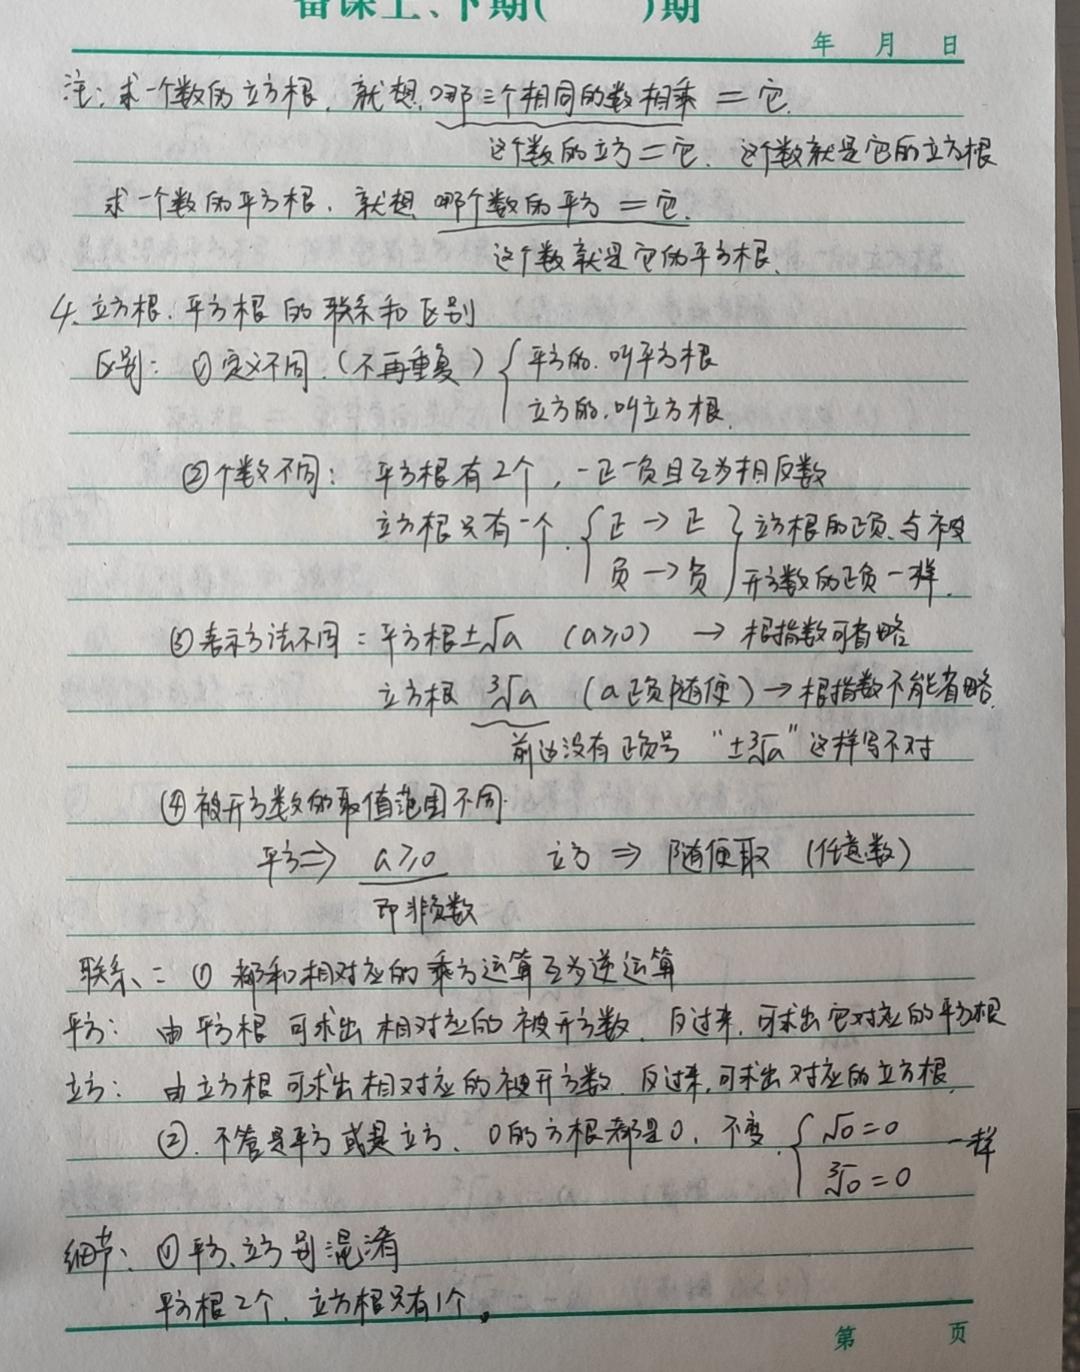 备课上、下期( )期
年 月 日
注：求一个数的立方根，就想，哪三个相同的数相乘 = 它.
这个数的立方=它. 这个数就是它的立方根
求一个数的平方根. 就想 哪个数的平方 = 它.
这个数就是它的平方根.
4. 立方根. 平方根 的 联系和区别
区别: ①定义不同. (不再重复) { 平方的. 叫平方根
立方的. 叫立方根.
②个数不同: 平方根有2个, 一正一负且互为相反数
立方根只有一个. { 正 → 正 } 立方根的正负与被
负 → 负 开方数的正负一样.
③表示方法不同: 平方根±√a (a≥0) → 根指数可省略
立方根 ∛a (a正负随便) → 根指数不能省略.
前边没有正负号 "±∛a" 这样写不对
④被开方数的取值范围不同.
平方⇒ a≥0 立方 ⇒ 随便取 (任意数)
即非负数
联系: ① 都和相对应的乘方运算互为逆运算
平方: 由平方根可求出相对应的被开方数. 反过来, 可求出它对应的平方根
立方: 由立方根可求出相对应的被开方数. 反过来, 可求出对应的立方根.
②. 不管是平方或是立方、0的方根都是0. 不变. { √0=0 一样
∛0=0
细节: ①平方、立方别混淆
平方根2个. 立方根只有1个。
第 页